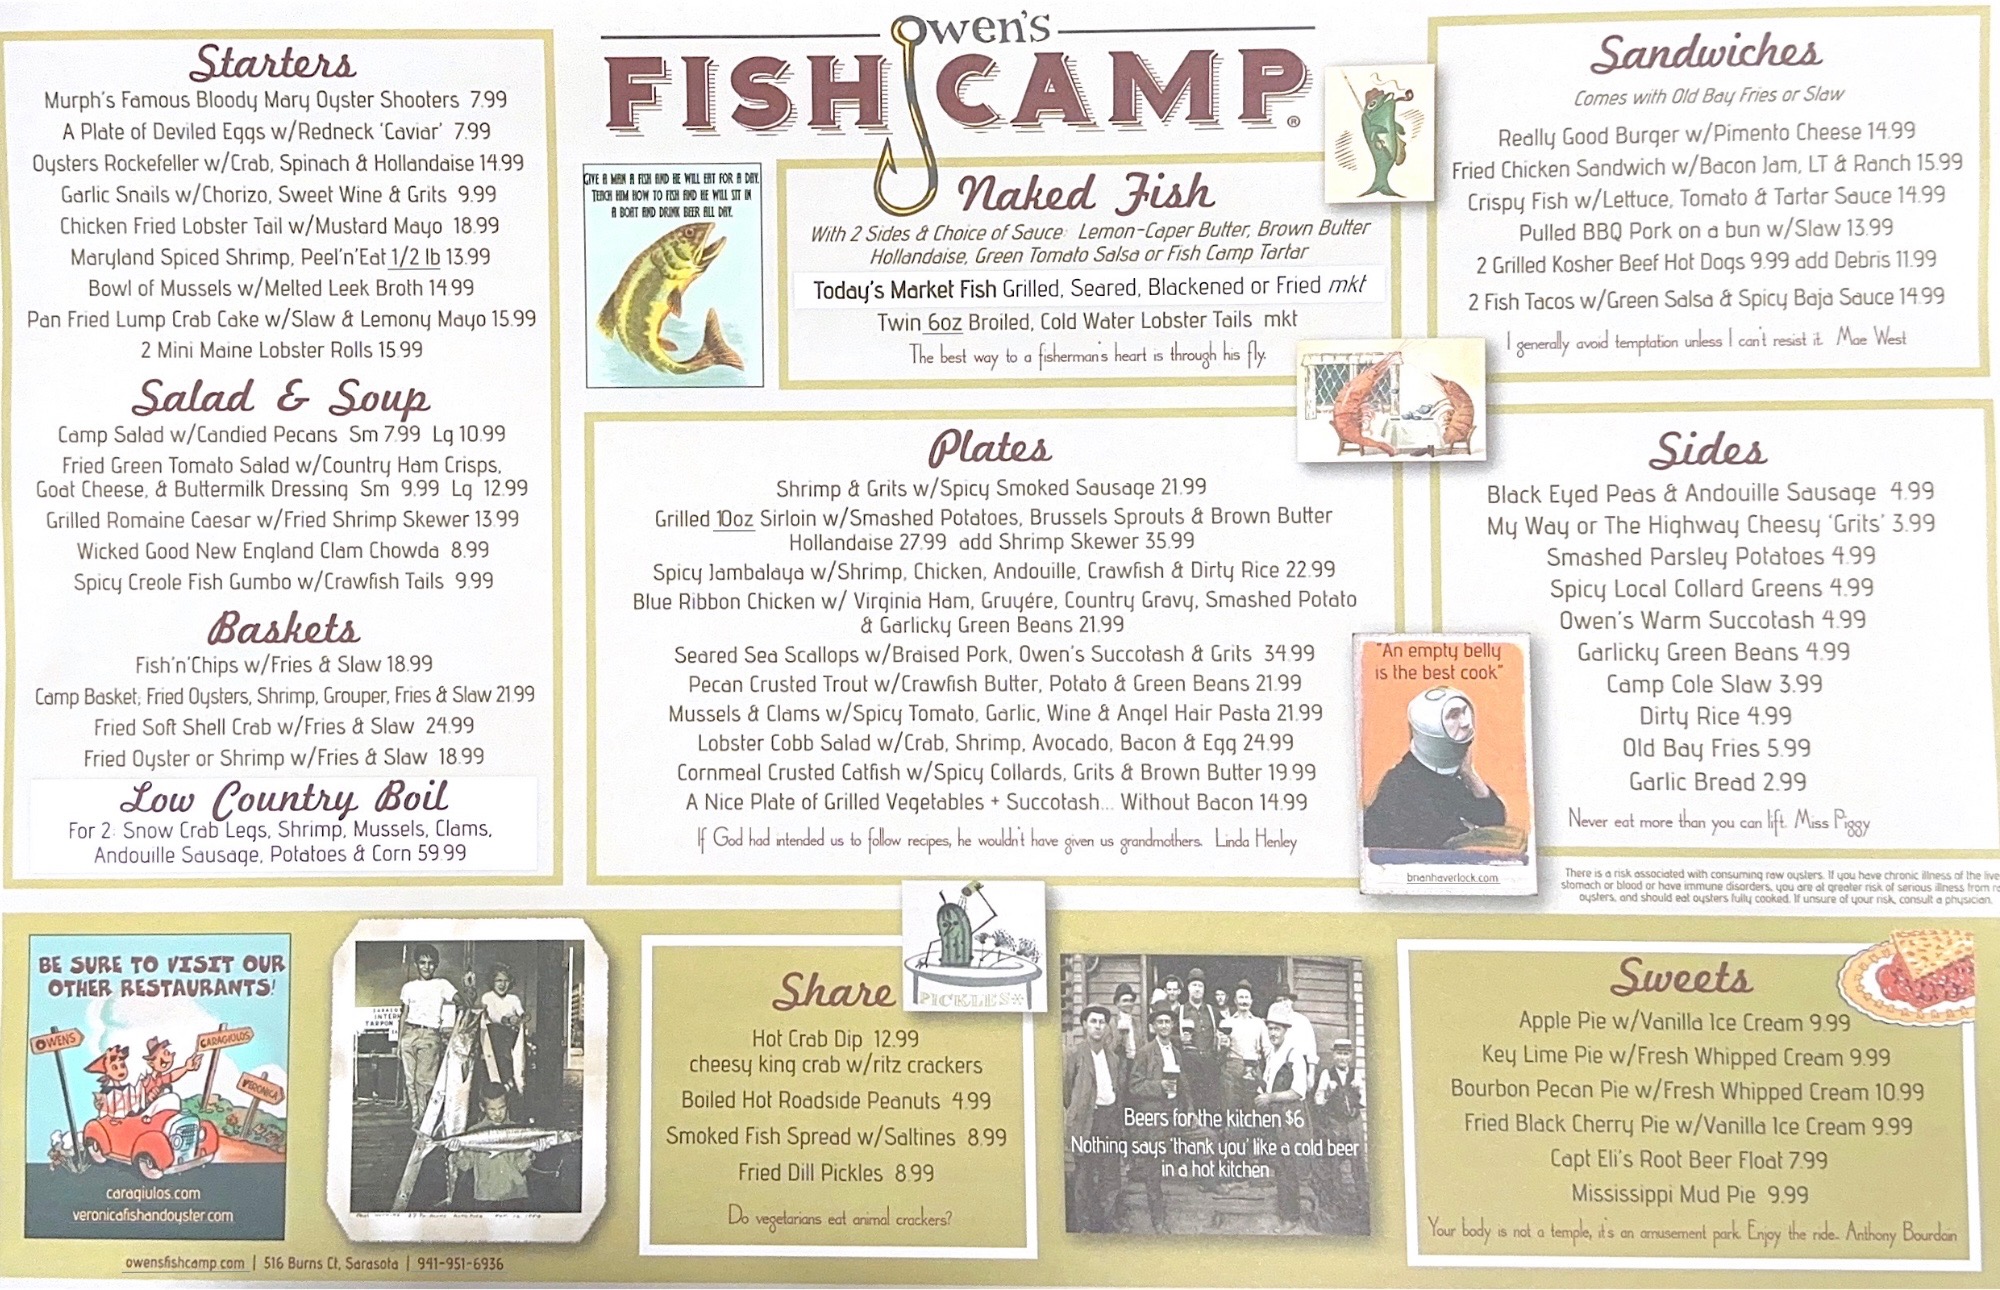 Owen's
FISH CAMP®
Starters
Murph's Famous Bloody Mary Oyster Shooters 7.99
A Plate of Deviled Eggs w/Redneck 'Caviar' 7.99
Oysters Rockefeller w/Crab, Spinach & Hollandaise 14.99
Garlic Snails w/Chorizo, Sweet Wine & Grits 9.99
Chicken Fried Lobster Tail w/Mustard Mayo 18.99
Maryland Spiced Shrimp, Peel'n'Eat 1/2 lb 13.99
Bowl of Mussels w/Melted Leek Broth 14.99
Pan Fried Lump Crab Cake w/Slaw & Lemony Mayo 15.99
2 Mini Maine Lobster Rolls 15.99
Salad & Soup
Camp Salad w/Candied Pecans Sm 7.99 Lg 10.99
Fried Green Tomato Salad w/Country Ham Crisps,
Goat Cheese, & Buttermilk Dressing Sm 9.99 Lg 12.99
Grilled Romaine Caesar w/Fried Shrimp Skewer 13.99
Wicked Good New England Clam Chowda 8.99
Spicy Creole Fish Gumbo w/Crawfish Tails 9.99
Baskets
Fish'n'Chips w/Fries & Slaw 18.99
Camp Basket; Fried Oysters, Shrimp, Grouper, Fries & Slaw 21.99
Fried Soft Shell Crab w/Fries & Slaw 24.99
Fried Oyster or Shrimp w/Fries & Slaw 18.99
Low Country Boil
For 2: Snow Crab Legs, Shrimp, Mussels, Clams,
Andouille Sausage, Potatoes & Corn 59.99
GIVE A MAN A FISH AND HE WILL EAT FOR A DAY.
TEACH HIM HOW TO FISH AND HE WILL SIT IN
A BOAT AND DRINK BEER ALL DAY.
Naked Fish
With 2 Sides & Choice of Sauce: Lemon-Caper Butter, Brown Butter
Hollandaise, Green Tomato Salsa or Fish Camp Tartar
Today's Market Fish Grilled, Seared, Blackened or Fried mkt
Twin 6oz Broiled, Cold Water Lobster Tails mkt
The best way to a fisherman's heart is through his fly.
Plates
Shrimp & Grits w/Spicy Smoked Sausage 21.99
Grilled 10oz Sirloin w/Smashed Potatoes, Brussels Sprouts & Brown Butter
Hollandaise 27.99 add Shrimp Skewer 35.99
Spicy Jambalaya w/Shrimp, Chicken, Andouille, Crawfish & Dirty Rice 22.99
Blue Ribbon Chicken w/ Virginia Ham, Gruyére, Country Gravy, Smashed Potato
& Garlicky Green Beans 21.99
Seared Sea Scallops w/Braised Pork, Owen's Succotash & Grits 34.99
Pecan Crusted Trout w/Crawfish Butter, Potato & Green Beans 21.99
Mussels & Clams w/Spicy Tomato, Garlic, Wine & Angel Hair Pasta 21.99
Lobster Cobb Salad w/Crab, Shrimp, Avocado, Bacon & Egg 24.99
Cornmeal Crusted Catfish w/Spicy Collards, Grits & Brown Butter 19.99
A Nice Plate of Grilled Vegetables + Succotash... Without Bacon 14.99
If God had intended us to follow recipes, he wouldn't have given us grandmothers. Linda Henley
Sandwiches
Comes with Old Bay Fries or Slaw
Really Good Burger w/Pimento Cheese 14.99
Fried Chicken Sandwich w/Bacon Jam, LT & Ranch 15.99
Crispy Fish w/Lettuce, Tomato & Tartar Sauce 14.99
Pulled BBQ Pork on a bun w/Slaw 13.99
2 Grilled Kosher Beef Hot Dogs 9.99 add Debris 11.99
2 Fish Tacos w/Green Salsa & Spicy Baja Sauce 14.99
I generally avoid temptation unless I can't resist it. Mae West
Sides
Black Eyed Peas & Andouille Sausage 4.99
My Way or The Highway Cheesy 'Grits' 3.99
Smashed Parsley Potatoes 4.99
Spicy Local Collard Greens 4.99
Owen's Warm Succotash 4.99
Garlicky Green Beans 4.99
Camp Cole Slaw 3.99
Dirty Rice 4.99
Old Bay Fries 5.99
Garlic Bread 2.99
Never eat more than you can lift. Miss Piggy
"An empty belly
is the best cook"
brianhaverlock.com
There is a risk associated with consuming raw oysters. If you have chronic illness of the
stomach or blood or have immune disorders, you are at greater risk of serious illness from
oysters, and should eat oysters fully cooked. If unsure of your risk, consult a physician.
BE SURE TO VISIT OUR
OTHER RESTAURANTS!
OWEN'S
CARAGIULOS
VERONICA
caragiulos.com
veronicafishandoyster.com
owensfishcamp.com | 516 Burns Ct, Sarasota | 941-951-6936
TARPON
Share
PICKLES*
Hot Crab Dip 12.99
cheesy king crab w/ritz crackers
Boiled Hot Roadside Peanuts 4.99
Smoked Fish Spread w/Saltines 8.99
Fried Dill Pickles 8.99
Do vegetarians eat animal crackers?
Beers for the kitchen $6
Nothing says 'thank you' like a cold beer
in a hot kitchen
Sweets
Apple Pie w/Vanilla Ice Cream 9.99
Key Lime Pie w/Fresh Whipped Cream 9.99
Bourbon Pecan Pie w/Fresh Whipped Cream 10.99
Fried Black Cherry Pie w/Vanilla Ice Cream 9.99
Capt Eli's Root Beer Float 7.99
Mississippi Mud Pie 9.99
Your body is not a temple, it's an amusement park. Enjoy the ride. Anthony Bourdain